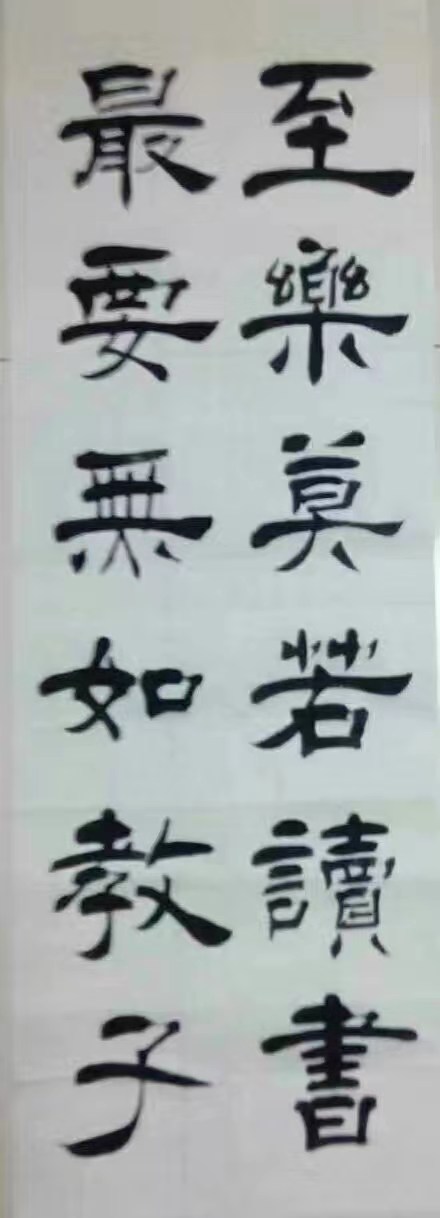 至樂莫若讀書
最要無如教子